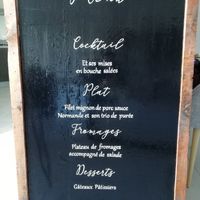 Menu
Cocktail
Et ses mises
en bouche salées
Plat
Filet mignon de porc sauce
Normande et son trio de purée
Fromages
Plateau de fromages
accompagné de salade
Desserts
Gâteaux Pâtissiers